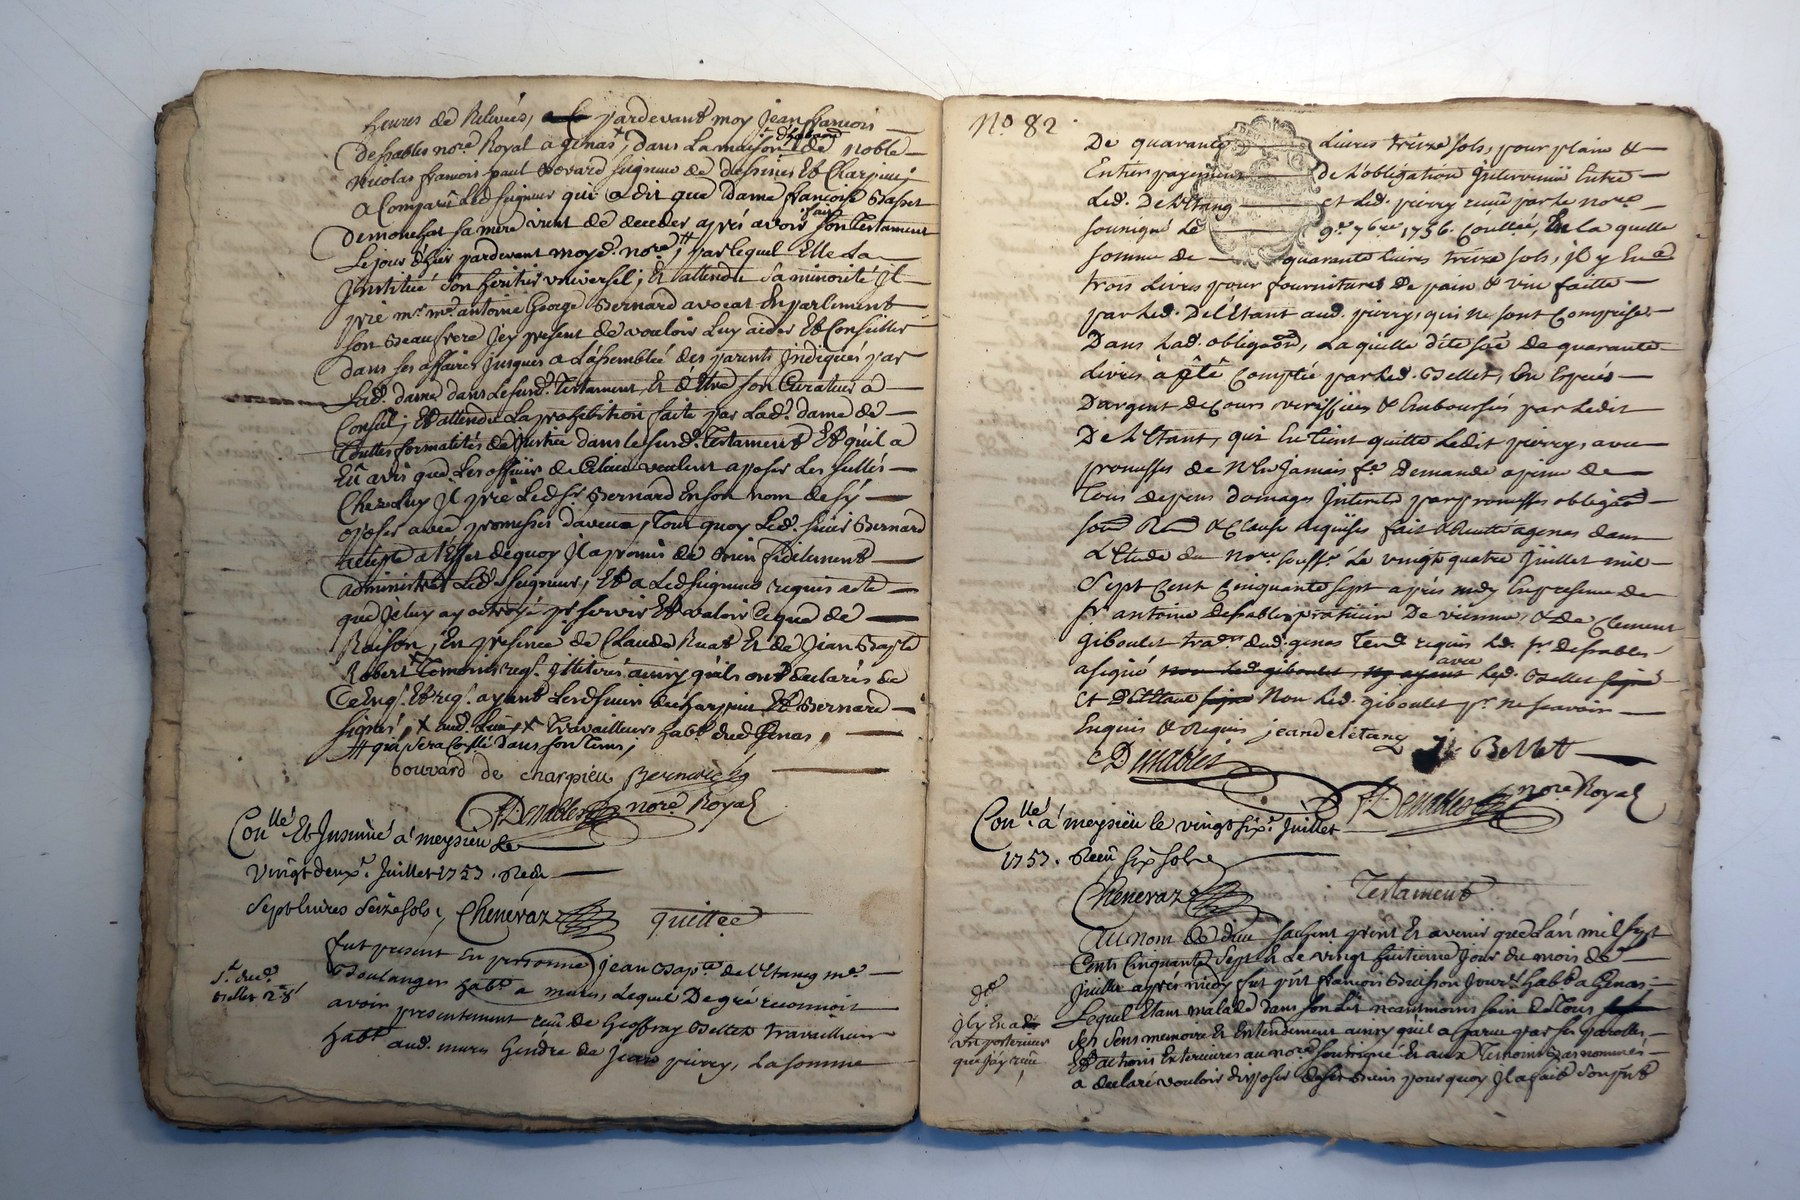 heures de Relevées, pardevant moy Jean francois
Desables nore. Royal a Genas, dans La maison d'habaon de noble
nicolas francois paul Bovard seigneur de dessines Et Charpieu
a Comparu Led. seigneur qui a dit que Dame francoise Basset
demonchat sa mere vient de deceder aprés avoir fait son Testament
Le jour d'hier pardevant moyd. nore ++, par lequel Elle La
Institué son heritier universel; Et attendu sa minorité Il
prie mr. me. antoine George Bernard avocat En parlement
son Beaufrere Icy present de vouloir Luy aider Et Conseiller
dans ses affaires jusques a L'assemblée des parents Indiquées par
Lad. dame dans Le susd. Testament, Et d'Etre son Curateur a
Conseil, Et attendu La prohibition faite par Lad. dame de
Touttes formalités de Justice dans le susd. Testament Et qu'il a
Eu avis que Les officiers de Celieu veulent aposer Les sellés
Chez Luy Il prie Led. sr. Bernard En son nom de s'y
oposer avec promesses d'aveu, Tout quoy Led. sieur Bernard
accepte a L'Effet de quoy Il a promis de Bien fidelement
administrer Led. seigneur, Et a Led. seigneur requis acte
que Je luy ay octroyé pr. servir Et valoir Ceque de
Raison, En presence de Claude Ruat Et de Jean Bapte.
Robert Temoins req. Illiterés ainsy qu'ils ont declarés de
Ce Enq. Et req. ayant Lesd. sieurs de Charpieu Et Bernard
signés, X aud. Lieu, X Travailleurs habt. dud. Genas,
++ qui sera Collé dans son Tems,
bouvard de charpieu Bernard
Desables nore Royal
Conllé Et Insinué a meysieu Le
Vingt deuxe. Juillet 1757. Reçu
Sept Livres Seize sols, Chenevaz
quittce
fut present En personne jean Bapte. de L'Etang me.
Boulanger habt. a mures, Lequel De gré reconnoit
avoir presentement reçu de Geoffray Bellet Travailleur
habt. aud. mures Gendre de Jean pierry, La somme
No. 82
De quarante Livres treize sols, pour plain &
Entier payement De L'obligation Intervenüe Entre
Led. De L'Etang et Led. pierry reçue par le nore.
sousigné Le 9e. 7bre. 1756. Conllée, En la quelle
somme de quarante Livres treize sols, jl y En a
trois Livres pour fournitures de pain & vin faitte
par Led. De L'Etant aud. pierry, qui ne sont Comprise
Dans Lad. obligaon, La quelle ditte some de quarante
Livres à êtê Comptée par Led. Bellet, En Especes
D'argent de Cours veriffiées & Emboursés par Ledit
De L'Etant, qui En Tient quitte Ledit pierry, avec
promesses de N'En Jamais fe. Demande a peine de
Tous depens domages Interets par promesses obligaon
soon Ron & Clause requises fait & Recitté a genas dans
L'Etude du nore. soussé. Le vingt quatre Juillet mil
Sept Cent Cinquante sept aprés midy En presence de
sr. antoine Desables praticien De vienne, & de Clement
Giboulet tra. dud. genas Tem. requis Led. sr. desables
a signé avec Led. Bellet
Et DeL'Etant Non Led. giboulet pr. ne scavoir
Enquis & Requis jean de létang j. Bellet
Desables
Desables nore Royal
Conllé a meysieu le vingt sixe. Juillet
1757. Reçu six sols
Chenevaz
Testament
Au nom de dieu sachent present Et avenir que L'an mil sept
Cents Cinquante sept Et Le vingt huitieme Jour du mois de
juillet aprés midy fut pnt francois Buisson Jourr. habt. a Genas
Lequel Etant malade dans son Lit neantmoins sain de Tous
ses sens memoire Et Entendement ainsy qu'il a paru par ses parolles
Et actions Exterieures au nore. sousigné Et aux Temoins Bas nommés
a declaré vouloir disposer de ses Biens pourquoy Il a fait son pnt
jl y En a
un posterieur
que j'ay reçu